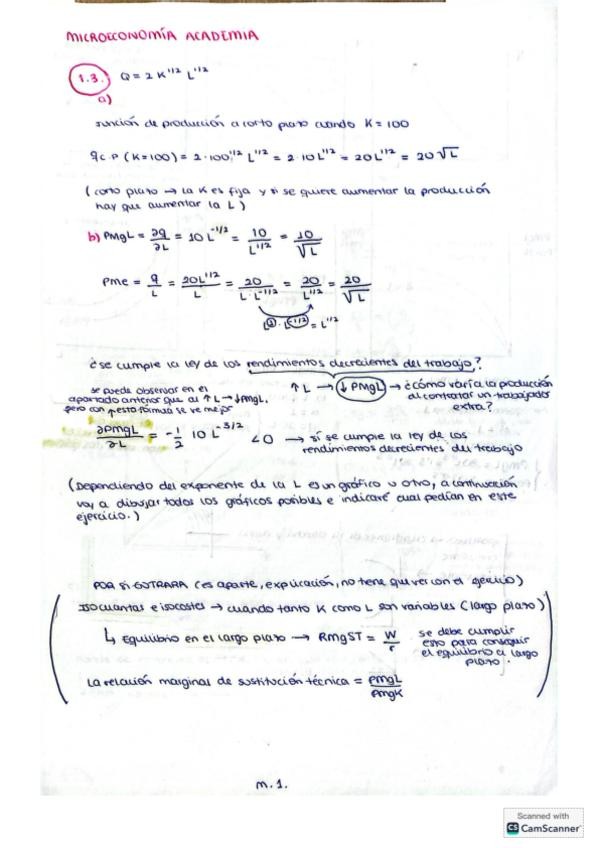 MICROECONOMÍA ACADEMIA
1.3. Q = 2 K^1/2 L^1/2
a)
función de producción a corto plazo cuando K = 100
q c.p (K=100) = 2·100^1/2 L^1/2 = 2·10 L^1/2 = 20 L^1/2 = 20 √L
(corto plazo → la K es fija y si se quiere aumentar la producción
hay que aumentar la L)
b) PMgL = ∂q/∂L = 10 L^-1/2 = 10/L^1/2 = 10/√L
Pme = q/L = 20L^1/2/L = 20/L·L^-1/2 = 20/L^1/2 = 20/√L
L^1 · L^-1/2 = L^1/2
¿se cumple la ley de los rendimientos decrecientes del trabajo?
se puede observar en el
apartado anterior que al ↑L → ↓PMgL.
pero con esta fórmula se ve mejor
↑L → ↓PMgL → ¿cómo varía la producción
al contratar un trabajador
extra?
∂PMgL/∂L = -1/2 10 L^-3/2 < 0 → sí se cumple la ley de los
rendimientos decrecientes del trabajo
(Dependiendo del exponente de la L es un gráfico u otro, a continuación
voy a dibujar todos los gráficos posibles e indicaré cual pedían en este
ejercicio.)
POR SI ENTRARA (es aparte, explicación, no tene que ver con el ejercicio)
Isocuantas e isocostes → cuando tanto K como L son variables (largo plazo)
↳ Equilibrio en el largo plazo → RMgST = W/r
se debe cumplir
esto para conseguir
el equilibrio a largo
plazo.
La relación marginas de sustitución técnica = PMgL/PMgK
M.1.
Scanned with
CS CamScanner